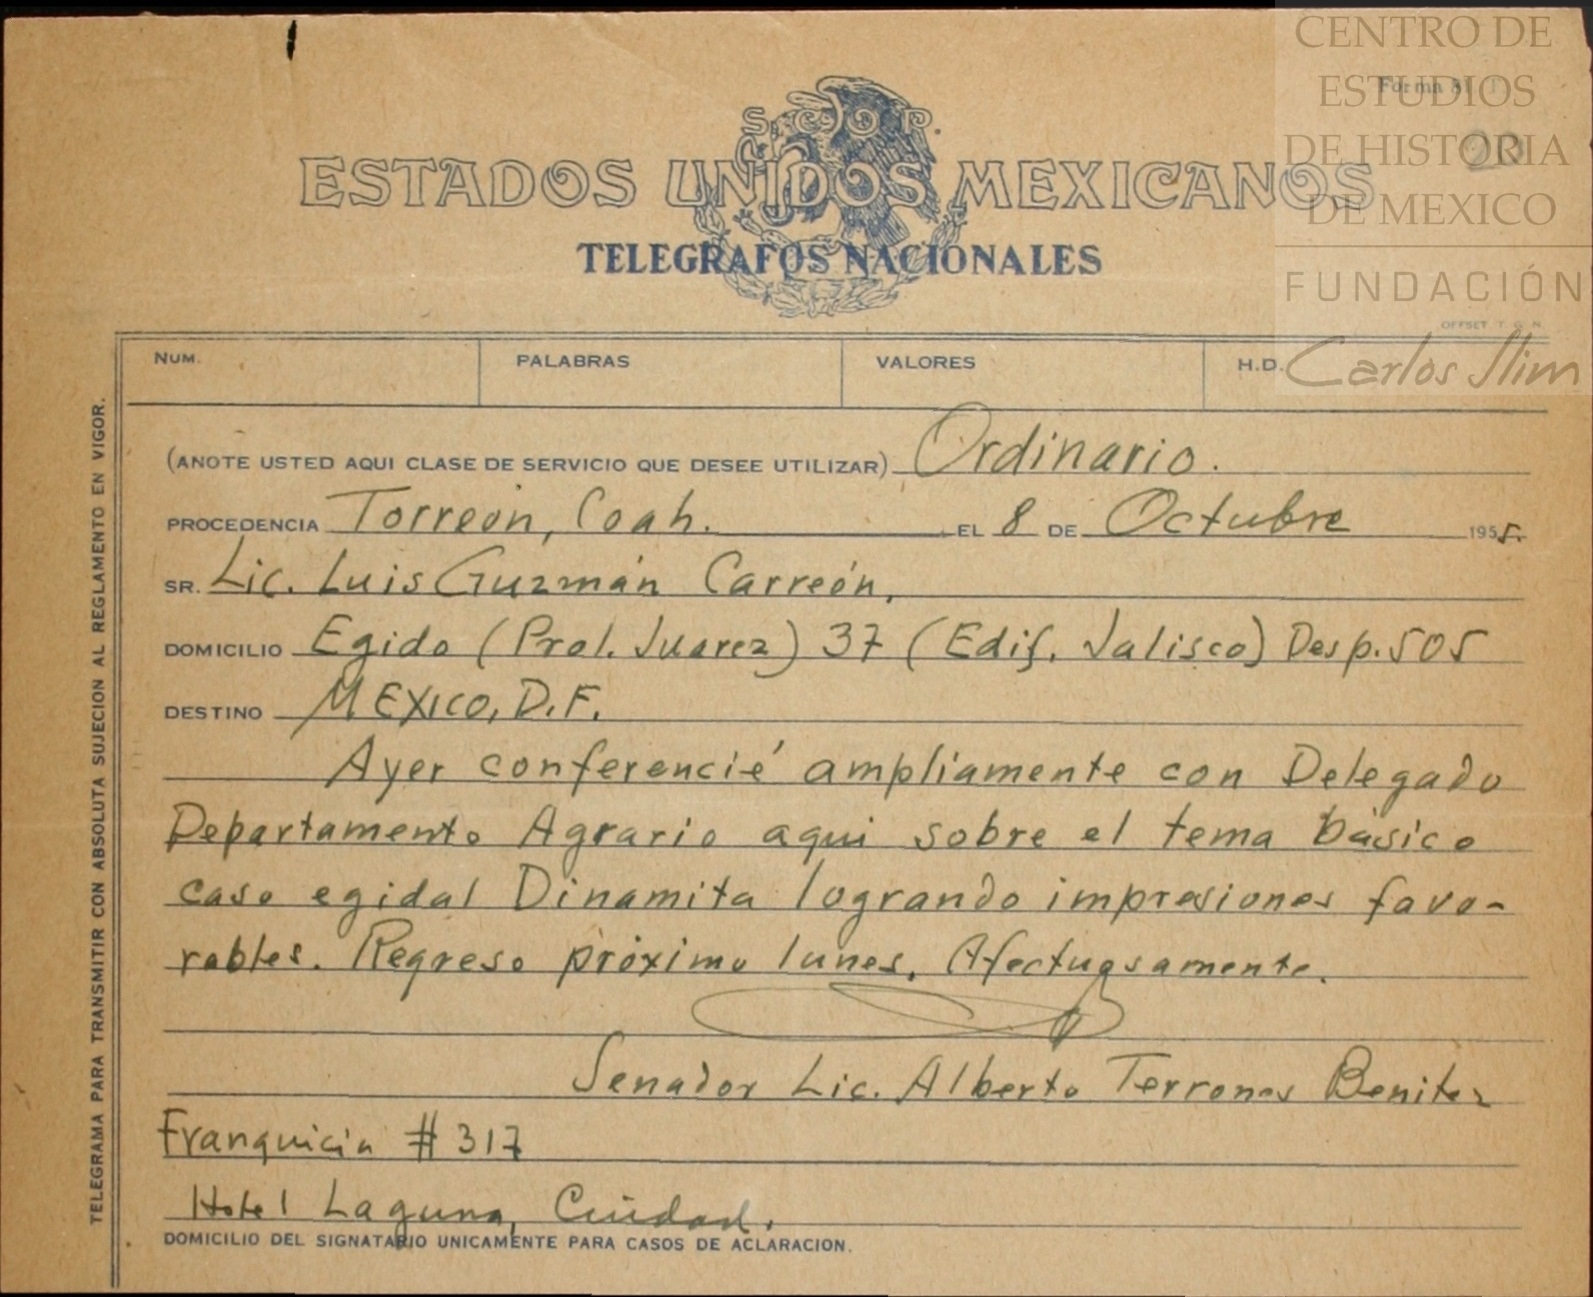 CENTRO DE
ESTUDIOS
DE HISTORIA
DE MEXICO
FUNDACIÓN
Carlos Slim
Forma
S. C. O. P.
ESTADOS UNIDOS MEXICANOS
TELEGRAFOS NACIONALES
OFFSET T. G. N.
NUM. PALABRAS VALORES H.D.
(ANOTE USTED AQUI CLASE DE SERVICIO QUE DESEE UTILIZAR) Ordinario.
PROCEDENCIA Torreón, Coah. EL 8 DE Octubre 1955.
SR. Lic. Luis Guzmán Carreón,
DOMICILIO Egido (Prol. Juarez) 37 (Edif. Jalisco) Desp. 505
DESTINO MEXICO, D.F.
Ayer conferencié ampliamente con Delegado
Departamento Agrario aqui sobre el tema básico
caso egidal Dinamita logrando impresiones favo-
rables. Regreso próximo lunes. Afectuosamente.
Senador Lic. Alberto Terrones Benitez
Franquicia # 317
Hotel Laguna, Ciudad.
DOMICILIO DEL SIGNATARIO UNICAMENTE PARA CASOS DE ACLARACION.
TELEGRAMA PARA TRANSMITIR CON ABSOLUTA SUJECION AL REGLAMENTO EN VIGOR.